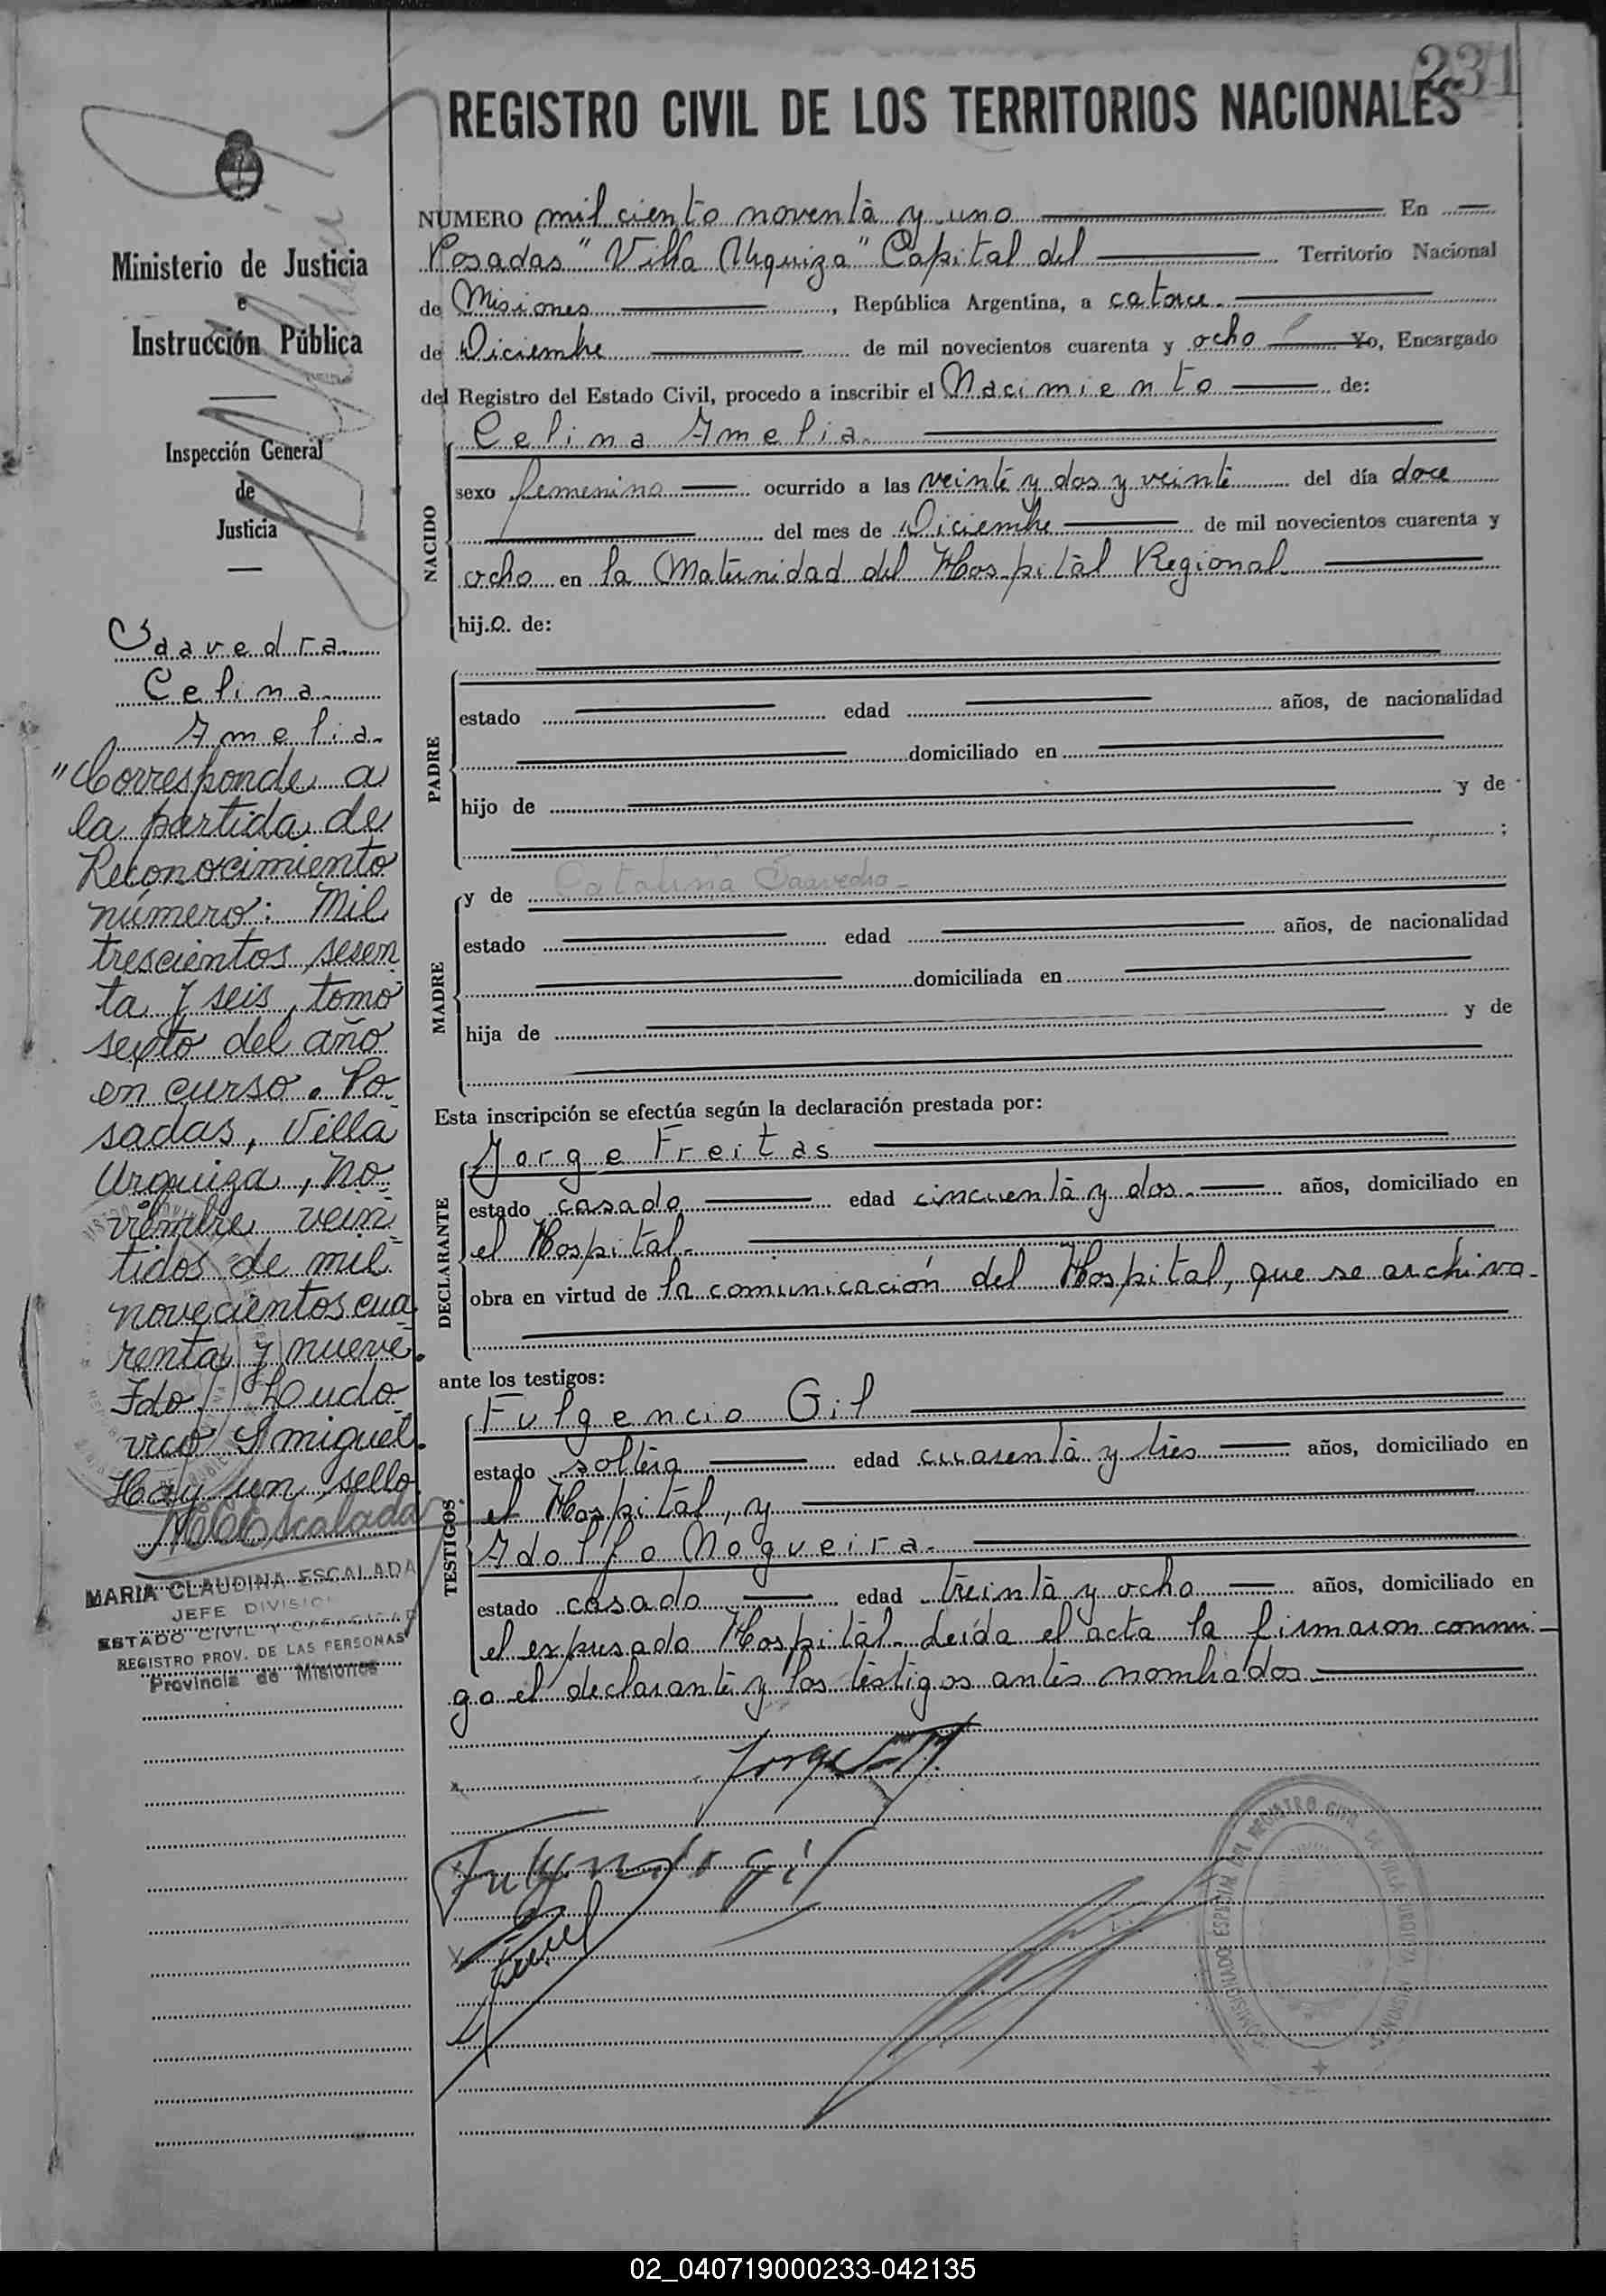 231
REGISTRO CIVIL DE LOS TERRITORIOS NACIONALES
Ministerio de Justicia
e
Instrucción Pública
Inspección General
de
Justicia
Saavedra
Celina
Amelia.
"Corresponde a
la partida de
Reconocimiento
número: Mil
trescientos sesen
ta y seis, tomo
sexto del año
en curso. Po-
sadas, Villa
Urquiza, No-
viembre vein
tidos de mil
novecientos cua
renta y nueve.
Fdo/ Ludo
vico Amiguel.
Hay un sello
MARIA CLAUDINA ESCALADA
JEFE DIVISION
ESTADO CIVIL Y CAPACIDAD
REGISTRO PROV. DE LAS PERSONAS
Provincia de Misiones
NUMERO mil ciento noventa y uno En
Posadas "Villa Urquiza" Capital del Territorio Nacional
de Misiones, República Argentina, a catorce.
de Diciembre de mil novecientos cuarenta y ocho Yo, Encargado
del Registro del Estado Civil, procedo a inscribir el Nacimiento de:
NACIDO
Celina Amelia.
sexo femenino ocurrido a las veinte y dos y veinte del día doce
del mes de Diciembre de mil novecientos cuarenta y
ocho en la Maternidad del Hospital Regional.
hij.o. de:
PADRE
estado edad años, de nacionalidad
domiciliado en
hijo de y de
;
MADRE
y de Catalina Saavedra.
estado edad años, de nacionalidad
domiciliada en
hija de y de
Esta inscripción se efectúa según la declaración prestada por:
DECLARANTE
Jorge Freitas
estado casado edad cincuenta y dos. años, domiciliado en
el Hospital.
obra en virtud de la comunicación del Hospital, que se archiva.
ante los testigos:
TESTIGOS
Fulgencio Gil
estado soltero edad cuarenta y tres años, domiciliado en
el Hospital, y
Adolfo Nogueira.
estado casado edad treinta y ocho años, domiciliado en
el expresado Hospital. Leída el acta la firmaron conmi-
go el declarante y los testigos antes nombrados.
COMISIONADO ESPECIAL DEL REGISTRO CIVIL DE VILLA URQUIZA MISIONES
02_040719000233-042135